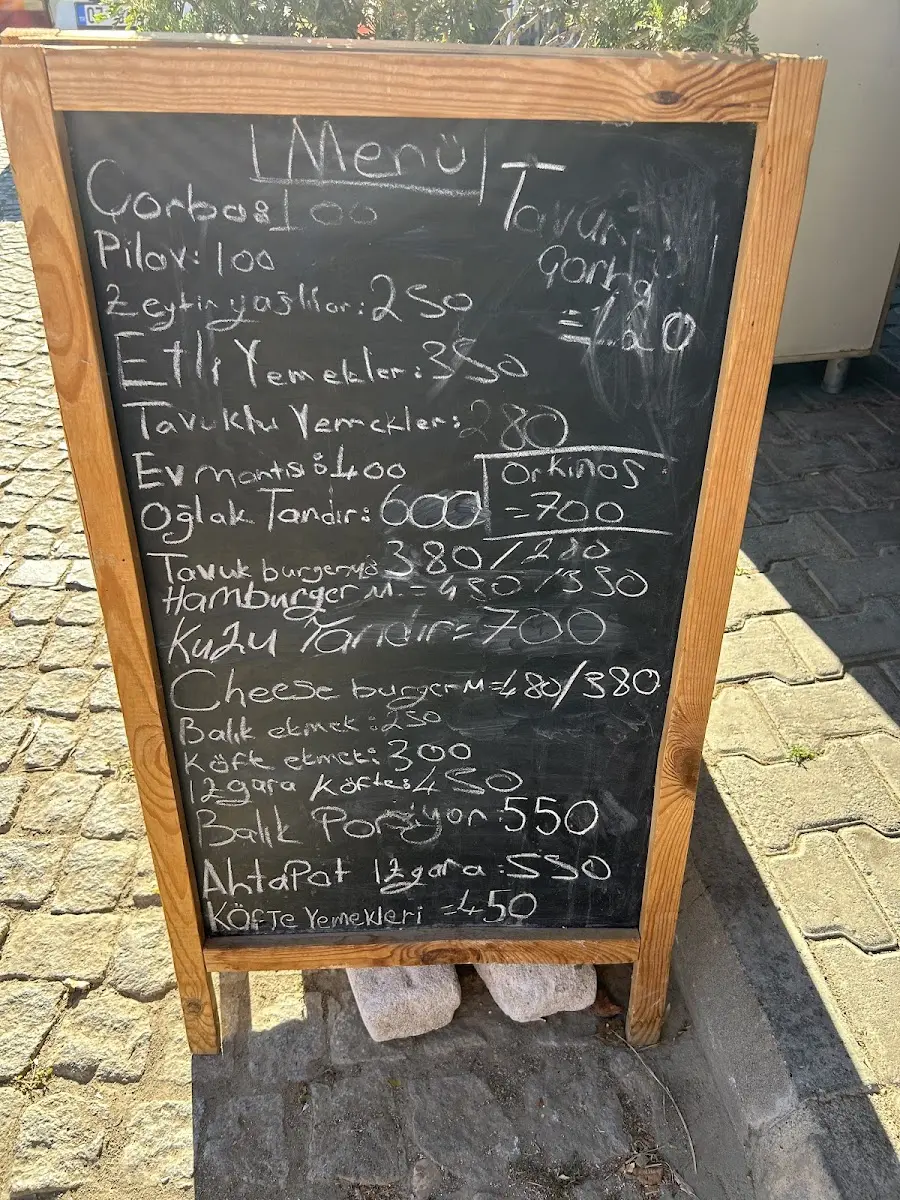 Menü
Çorba: 100
Pilav: 100
Zeytinyağlılar: 250
Etli Yemekler: 350
Tavuklu Yemekler: 280
Ev mantısı: 400
Oğlak Tandır: 600
Tavuk burger M= 380/280
Hamburger M.= 450/350
Kuzu Tandır= 700
Cheese burger M=480/380
Balık ekmek: 250
Köfte ekmek: 300
Izgara Köfte: 450
Balık Porsiyon: 550
AhtaPot Izgara: 550
KÖFTE YEMEKLERİ =450
Tavuk
Çorba
=120
Orkinos
=700